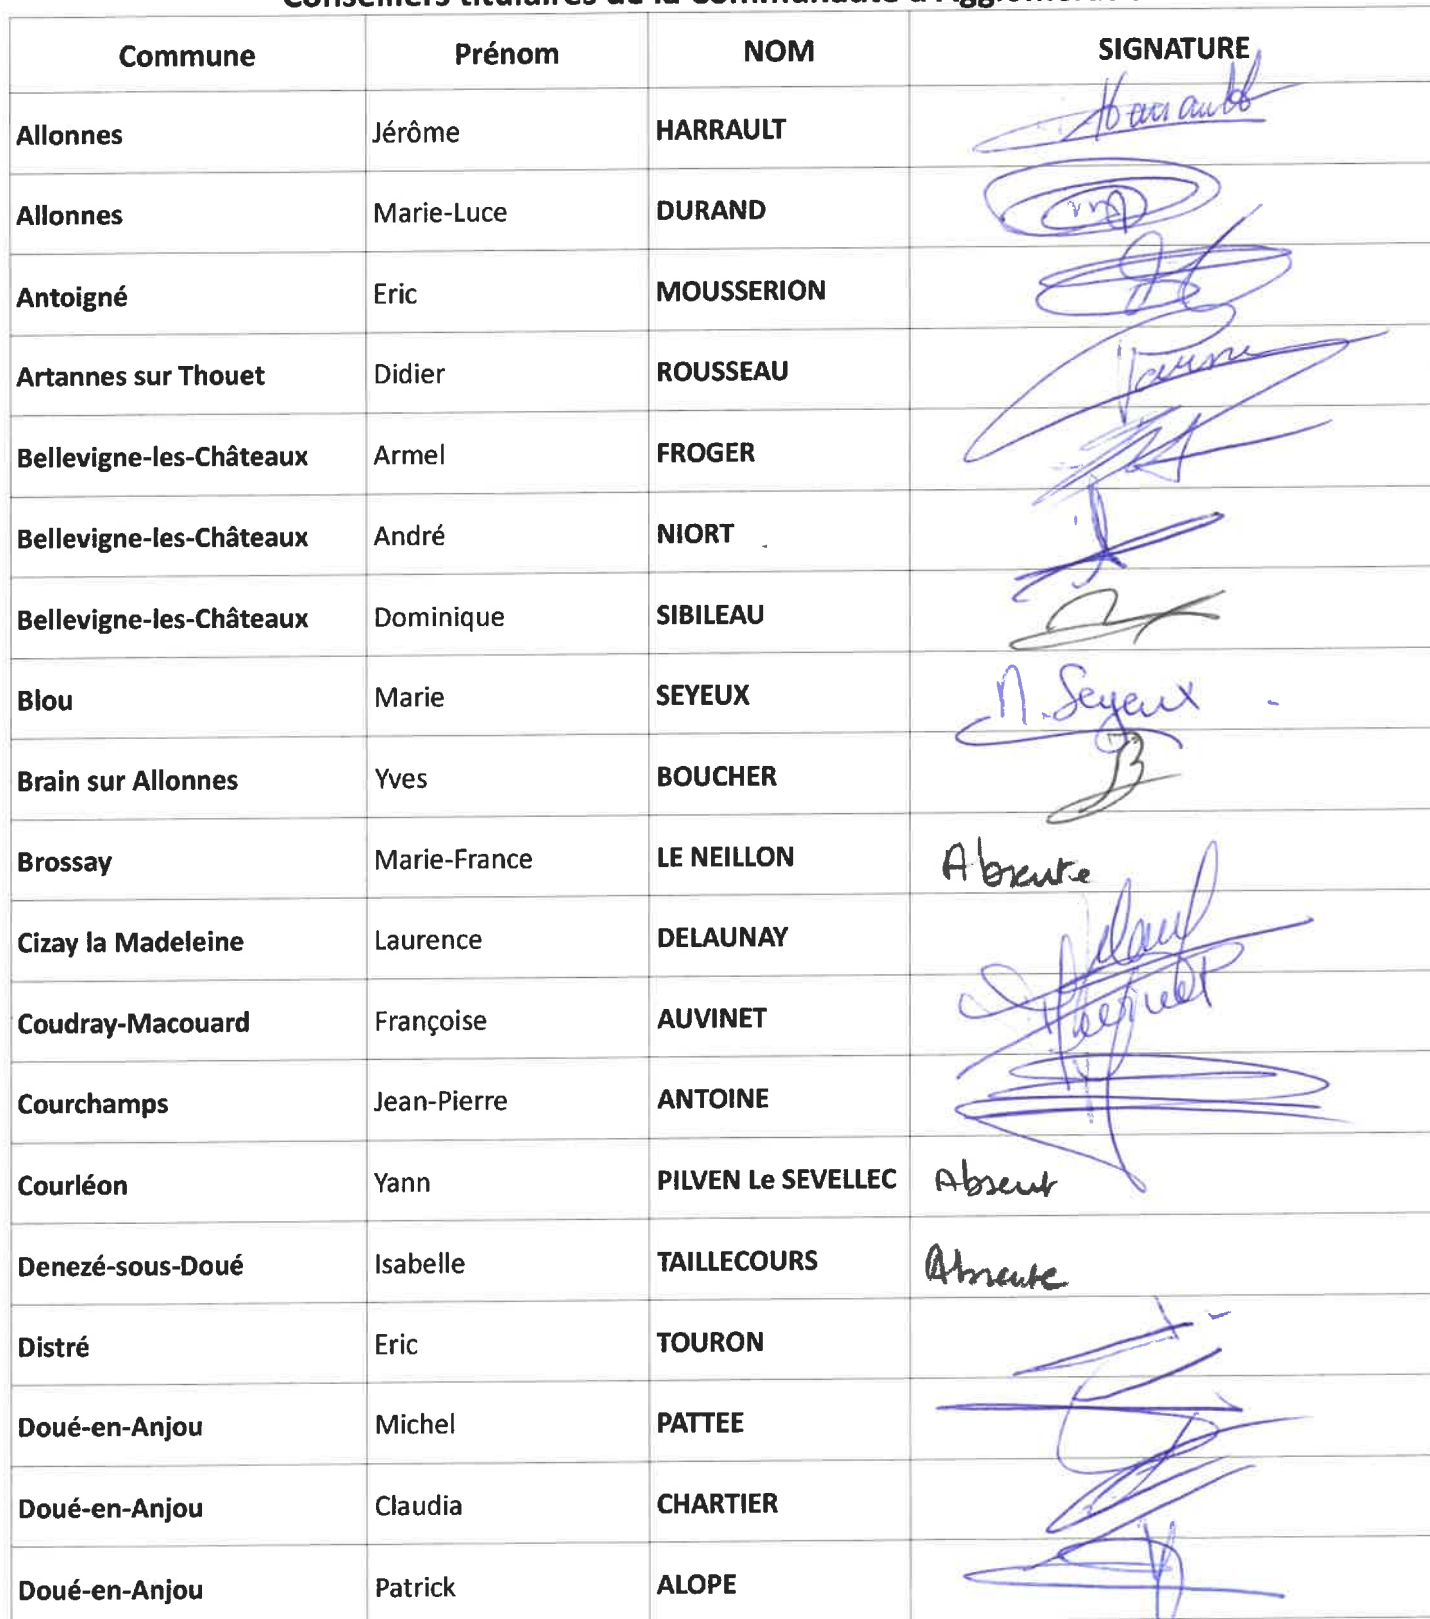 Conseillers titulaires de la Communauté d'Agglomérat
Commune Prénom NOM SIGNATURE
Allonnes Jérôme HARRAULT Harrault
Allonnes Marie-Luce DURAND
Antoigné Eric MOUSSERION
Artannes sur Thouet Didier ROUSSEAU
Bellevigne-les-Châteaux Armel FROGER
Bellevigne-les-Châteaux André NIORT
Bellevigne-les-Châteaux Dominique SIBILEAU
Blou Marie SEYEUX M. Seyeux
Brain sur Allonnes Yves BOUCHER B
Brossay Marie-France LE NEILLON Absente
Cizay la Madeleine Laurence DELAUNAY
Coudray-Macouard Françoise AUVINET
Courchamps Jean-Pierre ANTOINE
Courléon Yann PILVEN Le SEVELLEC Absent
Denezé-sous-Doué Isabelle TAILLECOURS Absente
Distré Eric TOURON
Doué-en-Anjou Michel PATTEE
Doué-en-Anjou Claudia CHARTIER
Doué-en-Anjou Patrick ALOPE